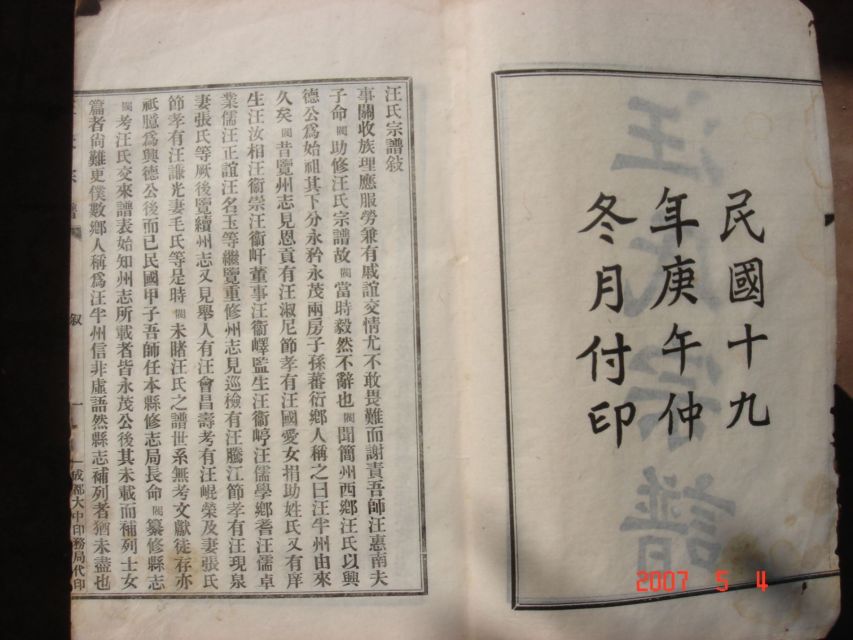 民國十九
年庚午仲
冬月付印
汪氏宗譜
汪氏宗譜敍
事關收族理應服勞兼有戚誼交情尤不敢畏難而謝責吾師汪惠南夫
子命閶助修汪氏宗譜故閶當時毅然不辭也閶聞簡州西鄉汪氏以興
德公為始祖其下分永矜永茂兩房子孫蕃衍鄉人稱之曰汪半州由來
久矣閶昔覽州志見恩貢有汪淑尼節孝有汪國愛女捐助姓氏又有庠
生汪汝相汪衢崇汪衢屽董事汪衢嶧監生汪衢崞汪儒學鄉耆汪儒卓
業儒汪正誼汪名玉等繼覽重修州志見巡檢有汪騰江節孝有汪現泉
妻張氏等厥後覽續州志又見舉人有汪會昌壽考有汪崐榮及妻張氏
節孝有汪謙光妻毛氏等是時閶未賭汪氏之譜世系無考文獻徒存亦
祇臆為興德公後而已民國甲子吾師任本縣修志局長命閶纂修縣志
閶考汪氏交來譜表始知州志所載者皆永茂公後其未載而補列士女
篇者尚難更僕數鄉人稱為汪半州信非虛語然縣志補列者猶未盡也
宗譜
敍
一
成都大中印務局代印
2007 5 4